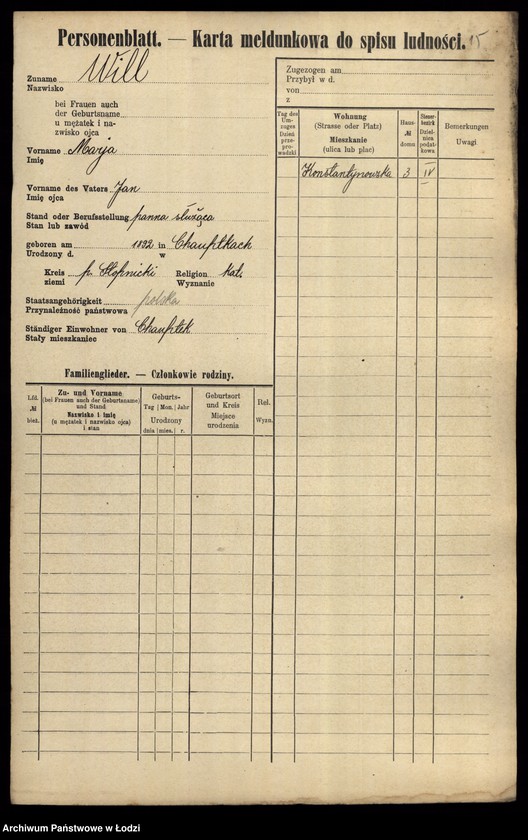 Personenblatt. — Karta meldunkowa do spisu ludności. 15
Zuname Will
Nazwisko
bei Frauen auch
der Geburtsname
u mężatek i na-
zwisko ojca
Vorname Marja
Imię
Vorname des Vaters Jan
Imię ojca
Stand oder Berufsstellung panna służąca
Stan lub zawód
geboren am 1892 in
Urodzony d. w
Kreis p. Stopnicki Religion kat.
ziemi Wyznanie
Staatsangehörigkeit polska
Przynależność państwowa
Ständiger Einwohner von
Stały mieszkaniec
Zugezogen am
Przybył w d.
von
z
Tag des Um-zuges Dzień prze-pro-wadzki
Wohnung
(Strasse oder Platz)
Mieszkanie
(ulica lub plac)
Haus-
№
domu
Steuer-bezirk Dziel-nica podat-kowa
Bemerkungen
Uwagi
Konstantynowska 3 IV
Familienglieder. — Członkowie rodziny.
Lfd.
№
bież.
Zu- und Vorname
(bei Frauen auch der Geburtsname)
und Stand
Nazwisko i imię
(u mężatek i nazwisko ojca)
i stan
Geburts-
Tag Mon. Jahr
Urodzony
dnia mies. r.
Geburtsort
und Kreis
Miejsce
urodzenia
Rel.
Wyzn.
Archiwum Państwowe w Łodzi